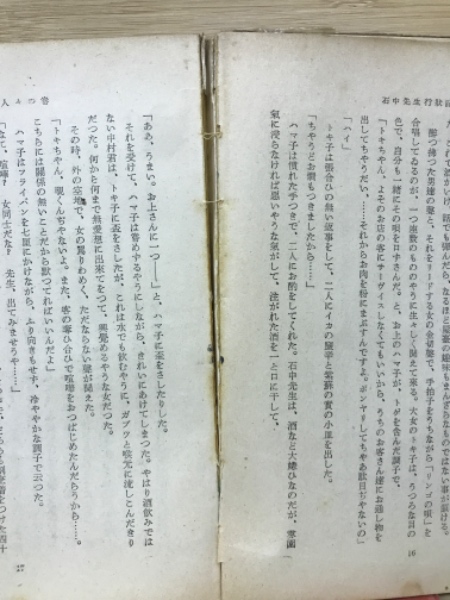 石中先生行状記
酔つ払つた男達の聲と、それをリードする女の金切聲で、手拍子をうちながら「リンゴの唄」を
合唱してゐるのが、一つ座敷のもののやうに生々しく聞えて來る。大女のトキ子は、うつろな目の
色で、自分も一緒にその唄を口ずさんだ。と、お上のハマ子が、トゲを含んだ調子で、
「トキちやん、よそのお店の客にサーヴイスしなくてもいいから、うちのお客さん達にお通し物を
出してちやうだい。……それからお肉を粉にまぶすんですよ。ボンヤリしてちやあ駄目ぢやないの」
「ハイ」
トキ子は張合ひの無い返事をして、二人にイカの鹽辛と紫蘇の實の小皿を出した。
「ちやうどお燗もつきましたから……」
ハマ子は慣れた手つきで、二人にお酌をしてくれた。石中先生は、酒など大嫌ひなのだが、
氣に浸らなければ惡いやうな氣がして、注がれた酒を一と口に干して、
16
「ああ、うまい。お上さんに一つ――」と、ハマ子に盃をさしたりした。
それを受けて、ハマ子は嘗めるやうにしながら、きれいにあけてしまつた。やはり酒飲みでは
ない中村君は、トキ子に盃をさしたが、これは水でも飲むやうに、ガブッと喉元に流しこんだきり
だつた。何から何まで無愛想に出來てをつて、興覺めるやうな女だつた。
その時、外の空地で、女の罵りわめく、ただならない聲が聞えた。
「トキちやん、覗くんぢやないよ。また、客の奪ひ合ひで喧嘩をおつぱじめたんだらうから……。
こちらには關係の無いことだから默つてればいいんだよ」
ハマ子はフライパンを七厘にかけながら、ふり向きもせず、冷ややかな調子で云つた。
「なに、喧嘩？ 女同士だな？ 先生、出てみませうや……」